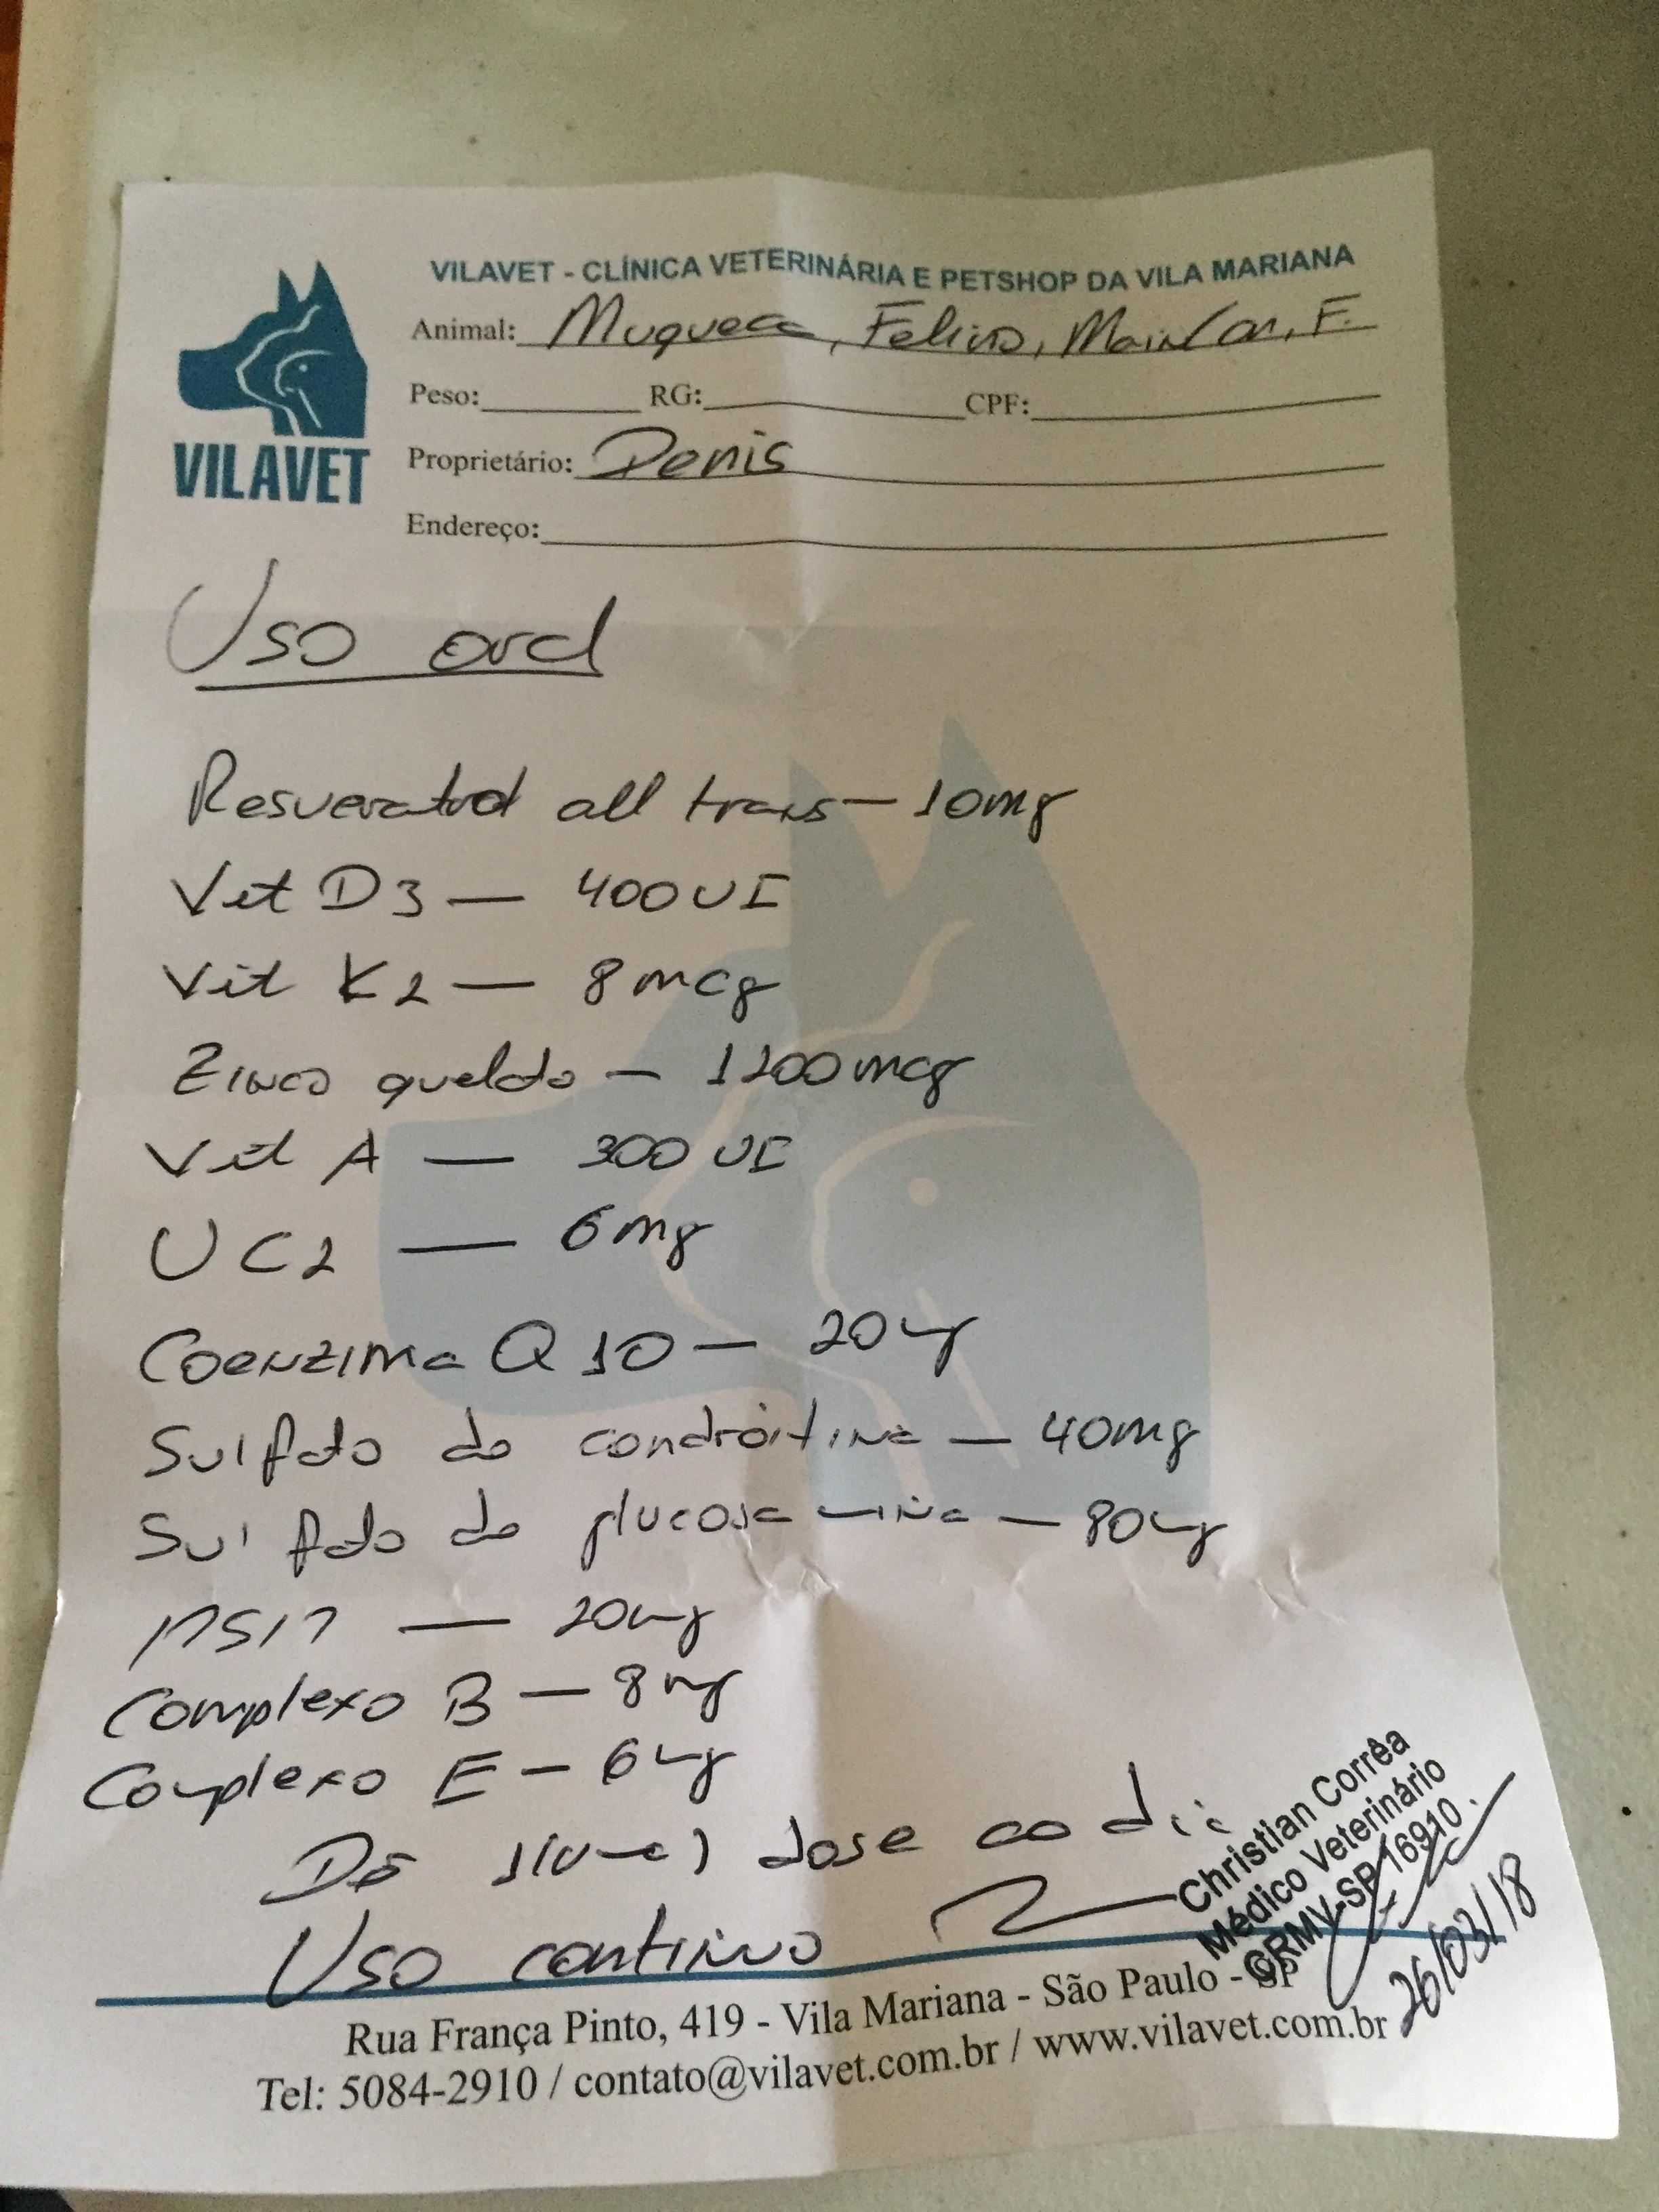 VILAVET
VILAVET - CLÍNICA VETERINÁRIA E PETSHOP DA VILA MARIANA
Animal: Muqueca, Felino, Main Con, F.
Peso: RG: CPF:
Proprietário: Denis
Endereço:
Uso oral
Resveratrol all trans - 10mg
Vit D3 - 400UI
Vit K2 - 8mcg
Zinco quelado - 1100mcg
Vit A - 300 UI
UC2 - 6mg
Coenzima Q10 - 20mg
Sulfato de condroitina - 40mg
Sulfato de glucosamina - 80mg
MSM - 20mg
Complexo B - 8mg
Complexo E - 6mg
Dar 1(uma) dose ao dia
Uso contínuo
Christian Corrêa
Médico Veterinário
CRMV-SP 16910
26/02/18
Rua França Pinto, 419 - Vila Mariana - São Paulo - SP
Tel: 5084-2910 / contato@vilavet.com.br / www.vilavet.com.br